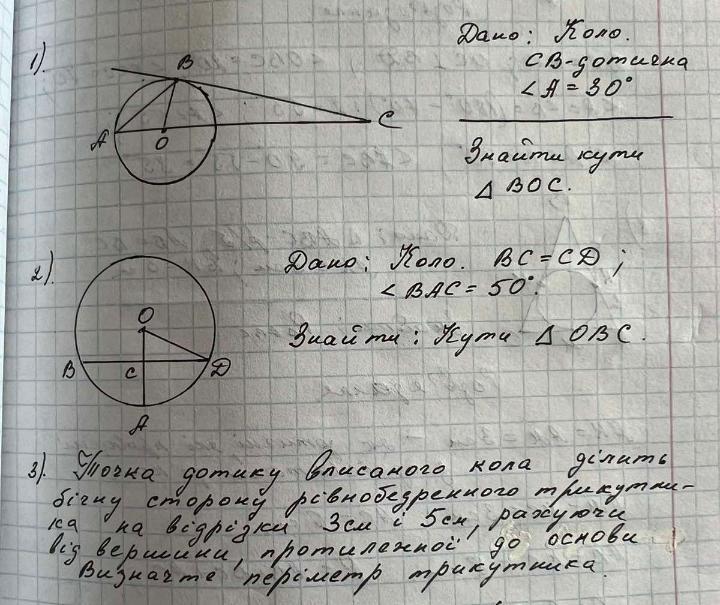 1).
Дано: Коло.
CB-дотична
∠A = 30°
Знайти кути
△ BOC.
B
A
O
C
2).
Дано: Коло. BC = CD;
∠BAC = 50°.
Знайти: Кути △ OBC.
O
B
C
D
A
3). Точка дотику вписаного кола ділить
бічну сторону рівнобедренного трикутни-
ка на відрізки 3см і 5см, рахуючи
від вершини, протилежної до основи
Визначте периметр трикутника.